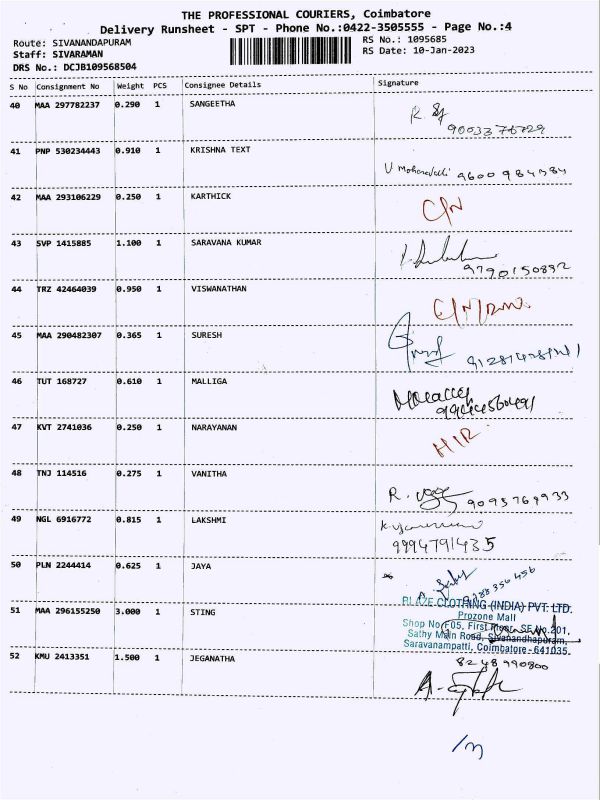 THE PROFESSIONAL COURIERS, Coimbatore
Delivery Runsheet - SPT - Phone No.:0422-3505555 - Page No.:4
Route: SIVANANDAPURAM RS No.: 1095685
Staff: SIVARAMAN RS Date: 10-Jan-2023
DRS No.: DCJB109568504
S No Consignment No Weight PCS Consignee Details Signature
40 MAA 297782237 0.290 1 SANGEETHA
41 PNP 530234443 0.910 1 KRISHNA TEXT
42 MAA 293106229 0.250 1 KARTHICK
C/N
43 SVP 1415885 1.100 1 SARAVANA KUMAR
9790150892
44 TRZ 42464039 0.950 1 VISWANATHAN
45 MAA 290482307 0.365 1 SURESH
46 TUT 168727 0.610 1 MALLIGA
47 KVT 2741036 0.250 1 NARAYANAN
48 TNJ 114516 0.275 1 VANITHA
9095769933
49 NGL 6916772 0.815 1 LAKSHMI
9994791435
50 PLN 2244414 0.625 1 JAYA
BLAZE CLOTHING (INDIA) PVT. LTD.
51 MAA 296155250 3.000 1 STING
Prozone Mall
Shop No.F05, First Floor, SF No.201,
Sathy Main Road, Sivanandhapuram,
Saravanampatti, Coimbatore-641035.
52 KMU 2413351 1.500 1 JEGANATHA
8248990800